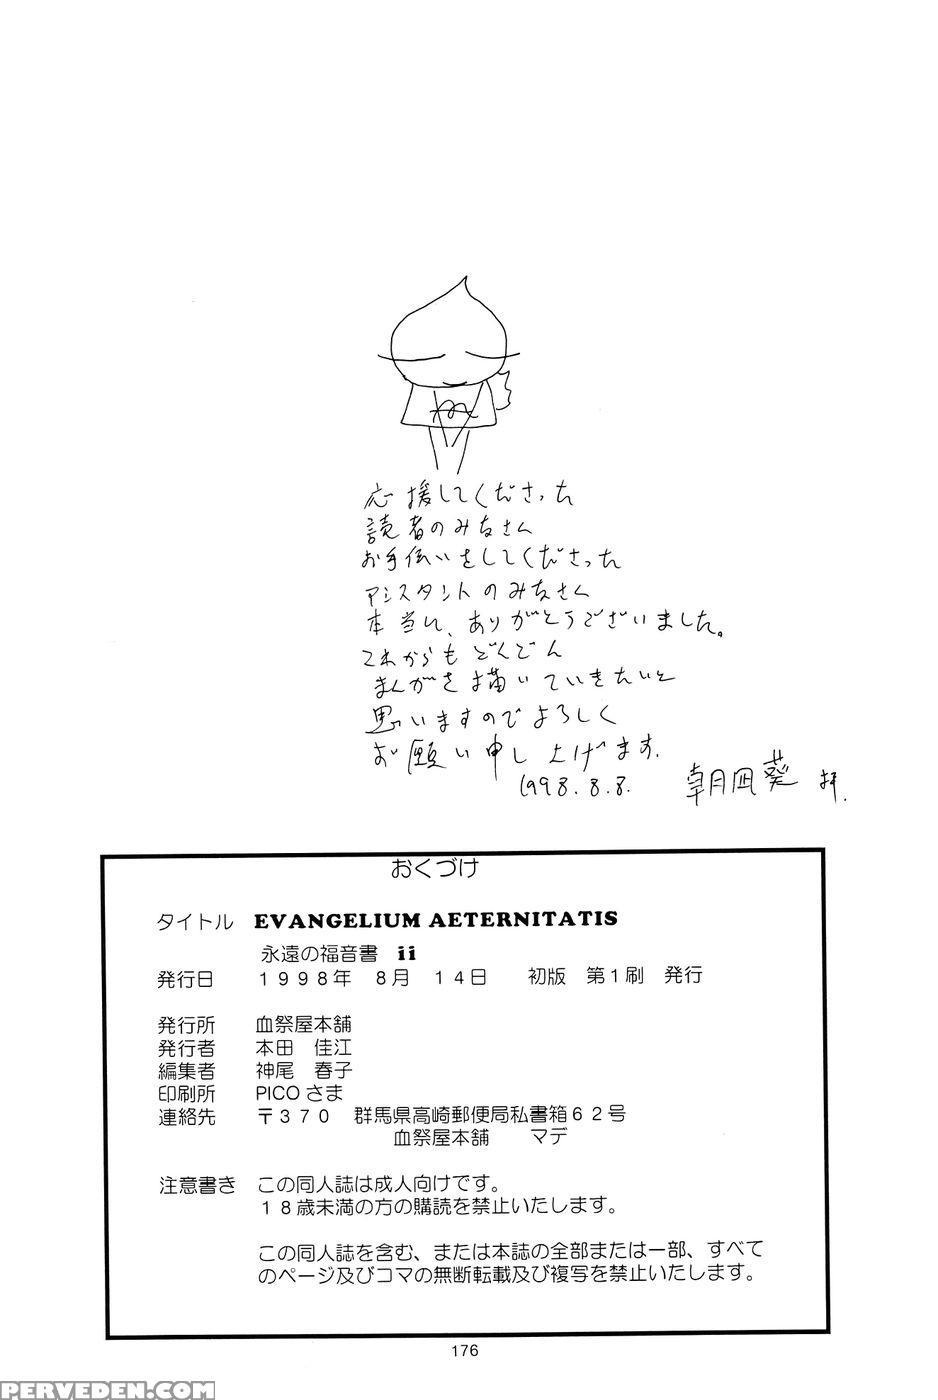 応援してくださった
読者のみなさん
お手伝いをしてくださった
アシスタントのみなさん
本当に、ありがとうございました。
これからもどんどん
まんがを描いていきたいと
思いますのでよろしく
お願い申し上げます.
1998.8.8. 朝凪葵 拝.
おくづけ
タイトル EVANGELIUM AETERNITATIS
永遠の福音書 ii
発行日 1998年 8月 14日 初版 第1刷 発行
発行所 血祭屋本舗
発行者 本田 佳江
編集者 神尾 春子
印刷所 PICOさま
連絡先 〒370 群馬県高崎郵便局私書箱62号
血祭屋本舗 マデ
注意書き この同人誌は成人向けです。
18歳未満の方の購読を禁止いたします。
この同人誌を含む、または本誌の全部または一部、すべて
のページ及びコマの無断転載及び複写を禁止いたします。
176
PERVEDEN.COM